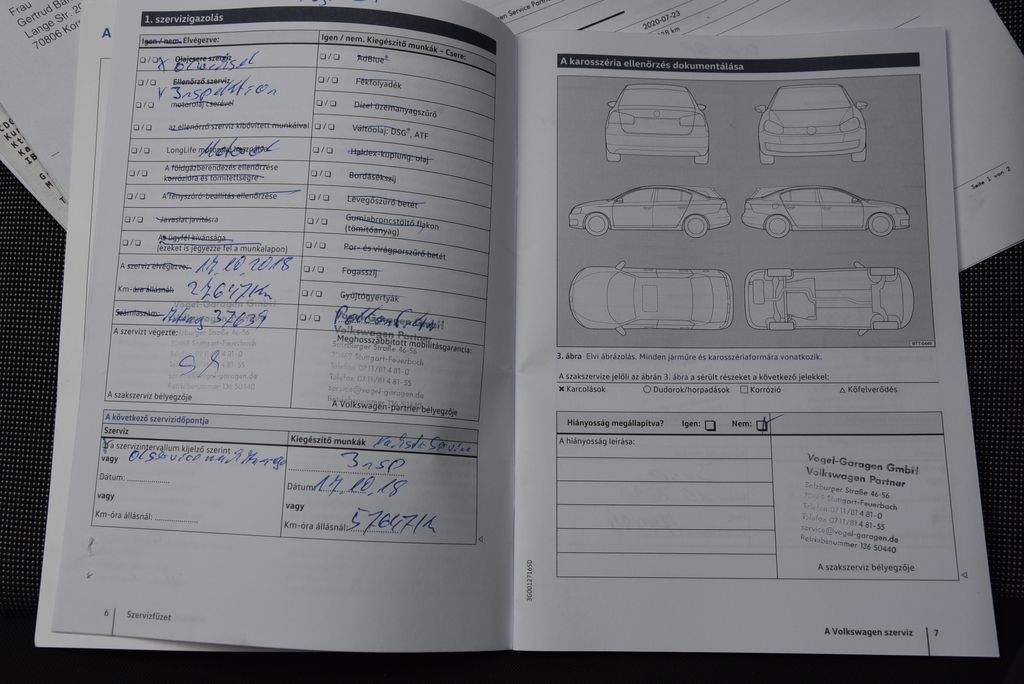 Frau
Gertrud Ba
Lange Str. 2
70806 Kor
A
en Service Partn
2020-07-23
km
Seite 1 von 2
1. szervizigazolás
Igen / nem. Elvégezve:
Igen / nem. Kiegészítő munkák – Csere:
❑ / ❑ Olajcsere szerviz
❑ / ❑ AdBlue®
❑ / ❑ Ellenőrző szerviz
Inspektion
❑ / ❑ Fékfolyadék
❑ / ❑ motorolaj cserével
❑ / ❑ Dízel üzemanyagszűrő
❑ / ❑ az ellenőrző szerviz kibővített munkáival
❑ / ❑ Váltóolaj: DSG®, ATF
❑ / ❑ LongLife
❑ / ❑ Haldex-kuplung. olaj
❑ / ❑ A földgázberendezés ellenőrzése
korrózióra és tömítettségre
❑ / ❑ Bordásékszíj
❑ / ❑ A fényszóró-beállítás ellenőrzése
❑ / ❑ Levegőszűrő betét
❑ / ❑ Javaslat javításra
❑ / ❑ Gumiabroncstöltő flakon
(tömítőanyag)
❑ / ❑ Az ügyfél kívánsága
(ezeket is jegyezze fel a munkalapon)
❑ / ❑ Por- és virágporszűrő betét
A szerviz elvégezve: 17.10.2018
❑ / ❑ Fogasszíj
Km-óra állásnál: 27647 Km
❑ / ❑ Gyújtógyertyák
Számlaszám: 37639
❑ / ❑
Vogel-Garagen GmbH
Volkswagen Partner
Meghosszabbított mobilitásgarancia:
A szervizt végezte:
Salzburger Straße 46-56
70469 Stuttgart-Feuerbach
Telefon 0711/81 4 81-0
Telefax 0711/81 4 81-55
service@vogel-garagen.de
Betriebsnummer 136 50440
A szakszerviz bélyegzője
A Volkswagen-partner bélyegzője
A következő szervizidőpontja
Szerviz
Kiegészítő munkák
a szervizintervallum kijelző szerint
vagy
Insp
Dátum:
Dátum: 17.10.18
vagy
vagy
Km-óra állásnál:
Km-óra állásnál: 57647 Km
6 Szervizfüzet
A karosszéria ellenőrzés dokumentálása
BTT-0446
3. ábra Elvi ábrázolás. Minden járműre és karosszériaformára vonatkozik.
A szakszervize jelöli az ábrán 3. ábra a sérült részeket a következő jelekkel:
✖ Karcolások ○ Dudorok/horpadások □ Korrózió △ Kőfelverődés
Hiányosság megállapítva? Igen: ❑ Nem: ❑
A hiányosság leírása:
Vogel-Garagen GmbH
Volkswagen Partner
Salzburger Straße 46-56
70469 Stuttgart-Feuerbach
Telefon 0711/81 4 81-0
Telefax 0711/81 4 81-55
service@vogel-garagen.de
Betriebsnummer 136 50440
A szakszerviz bélyegzője
3G0012716SD
A Volkswagen szerviz 7